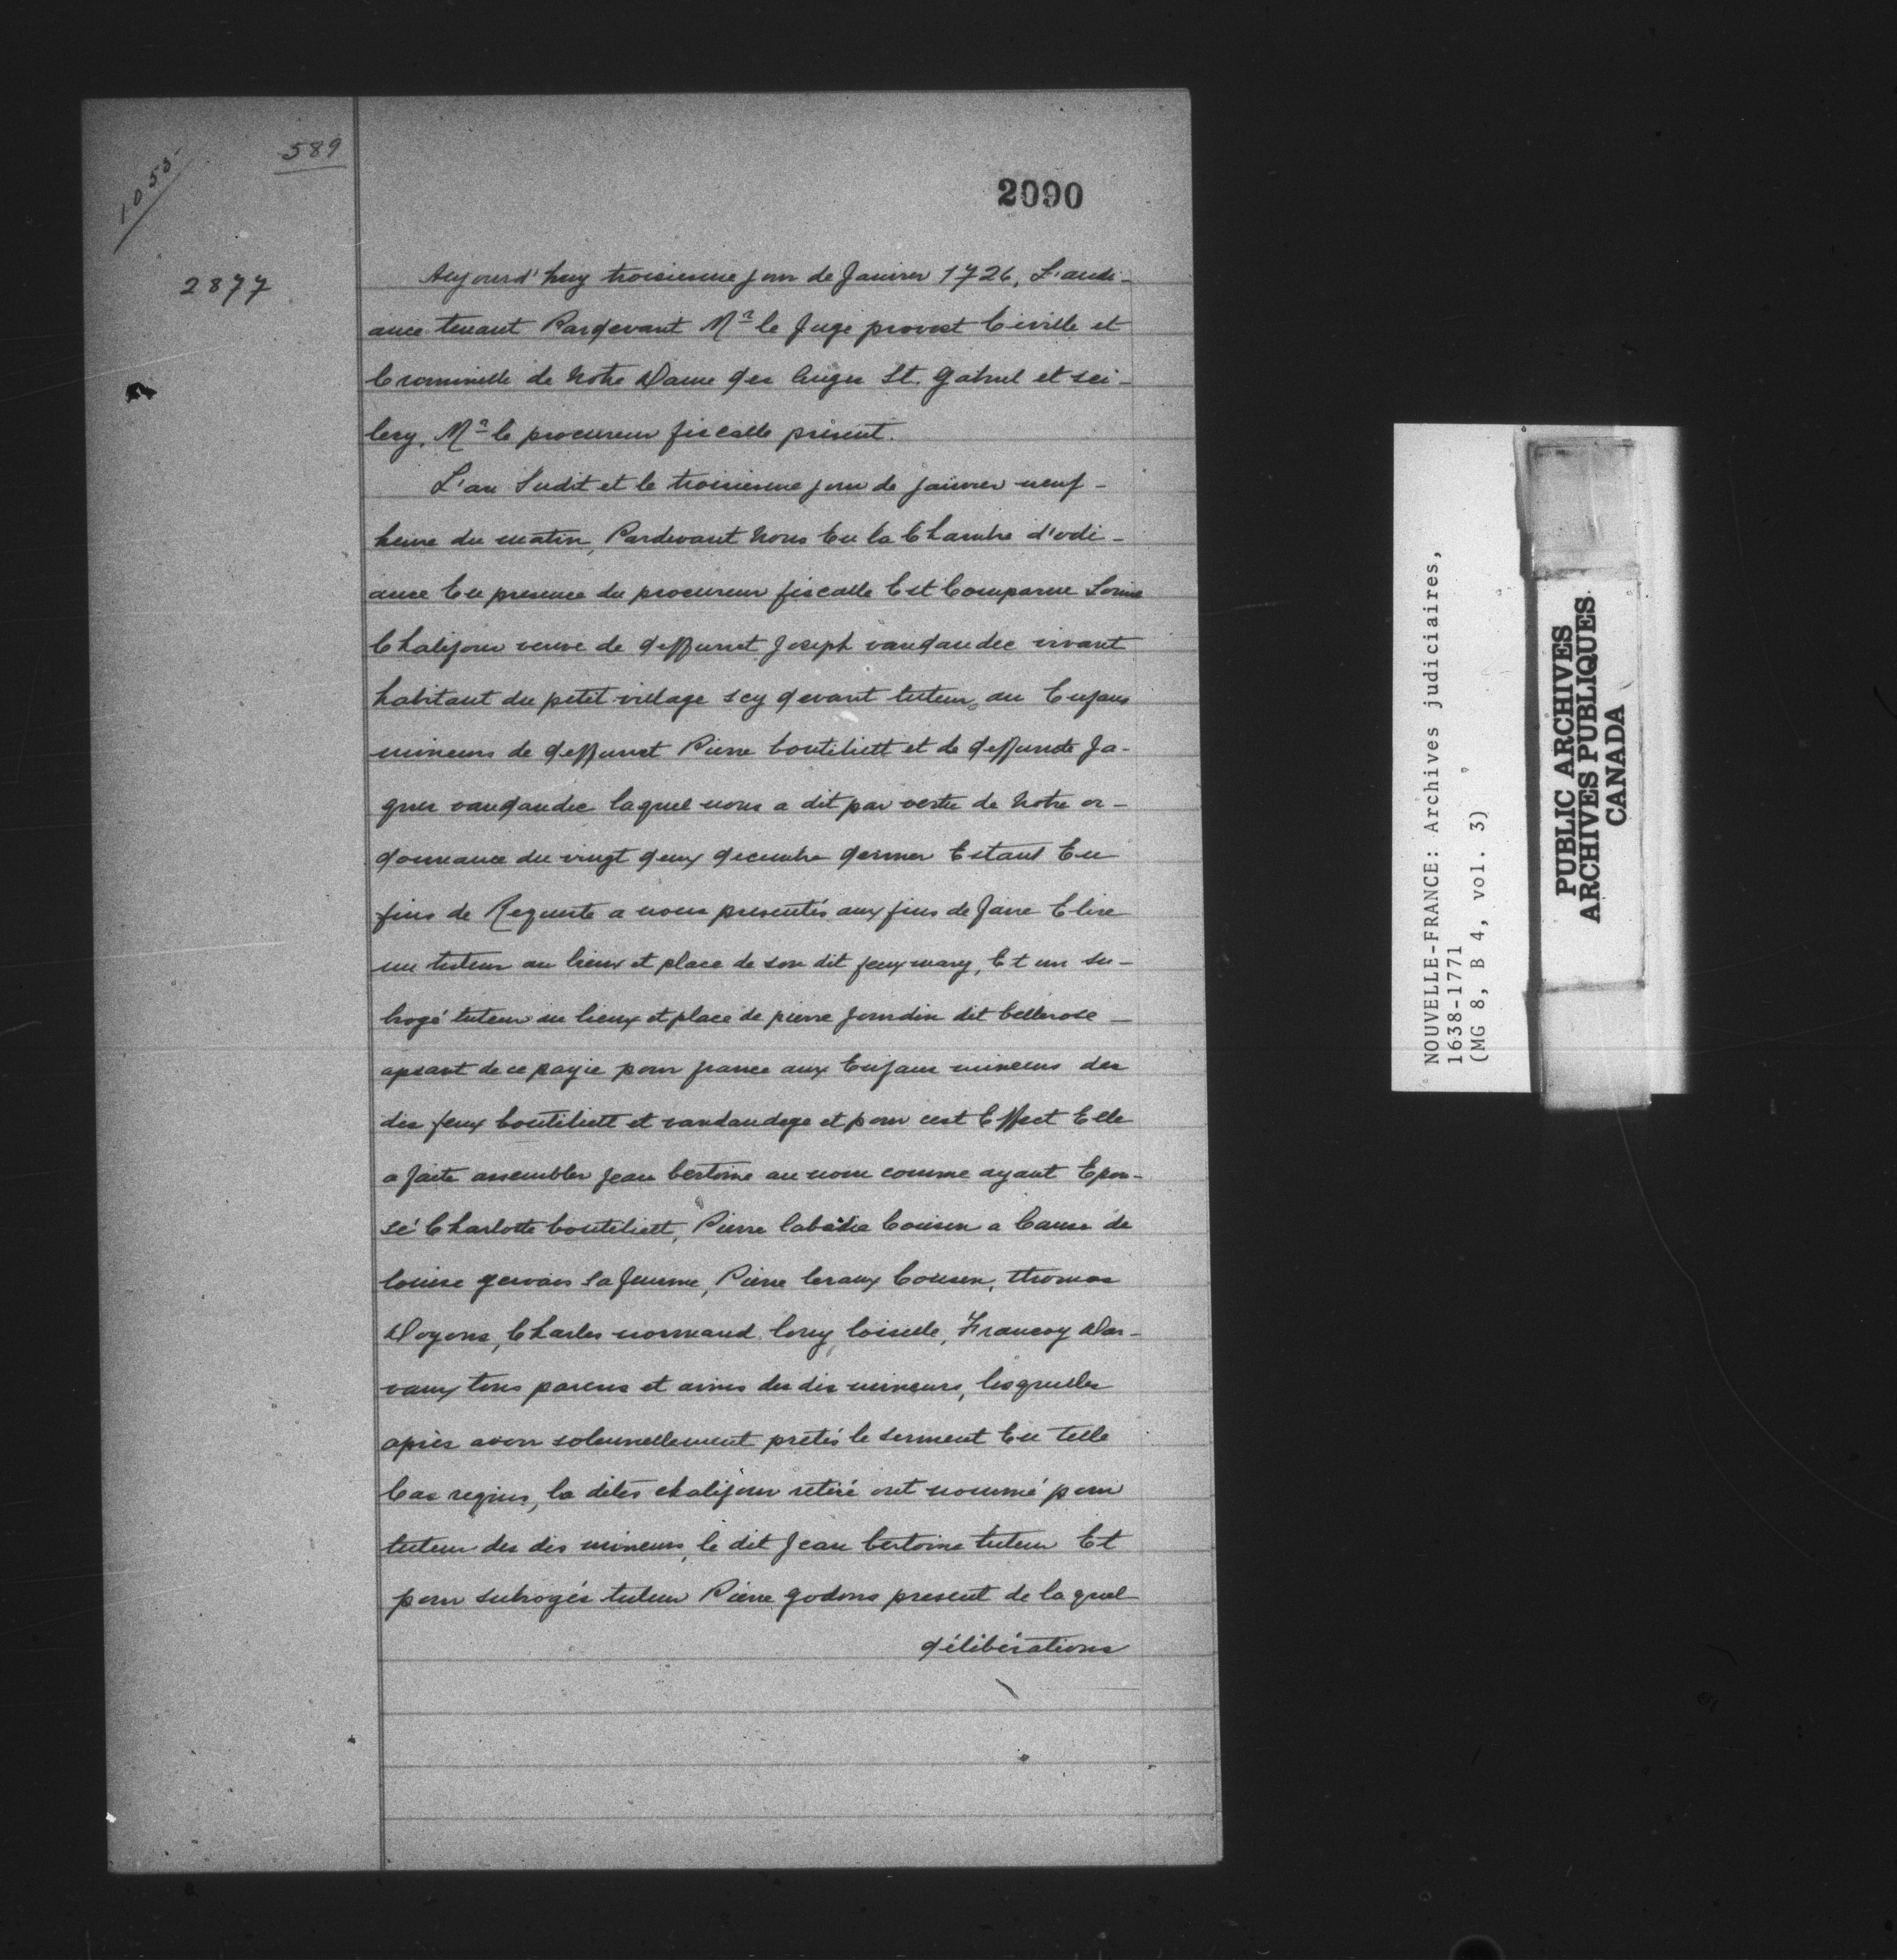 1055-
589
2090
2877
Aujourd'huy troisiesme jour de Janvier 1726, L'audi-
ance tenant Pardevant Mr le Juge provost Civille et
Crominelle de Notre Dame des Anges St. Gabriel et sei-
lery, Mr le procureur fiscalle présent.
L'an Sudit et le troisiesme jour de janvier neuf-
heure du matin, Pardevant Nous En la Chambre d'odi-
ance En presence du procureur fiscalle Est Comparue Louise
Chalifour veuve de deffunct Joseph vandandec vivant
habitant du petit village scy devant tuteur, au Enfans
mineurs de deffunct Pierre boutiliett et de deffuncte Ja-
ques vandandec laquel nous a dit par vertu de Notre or-
donnance du vingt deux decembre dernier Estant En
fins de Requeste a nous presentés aux fins de faire Elire
un tuteur au lieux et place de son dit feux mary, Et un su-
brogé tuteur au lieux et place de pierre jourdin dit bellerose
apsant de ce payie pour france aux Enfans mineurs des
dis feux boutiliett et vandandege et pour cest Effect Elle
a faite assembler jean bertoine au nom comme ayant Epou-
sé Charlotte boutiliett, Pierre labadie Couisen a Cause de
louise gervais sa femme, Pierre leraux Cousen, thomas
Doyons, Charles normand, louy loiselle, Francoy Dar-
vaux tous parens et aimes des dis mineurs, lesquelles
après avoir solennellement prétés le serment En telle
Cas requis, la dites chalifour retiré ont nommé pour
tuteur des dis mineurs, le dit Jean bertoine tuteur Et
pour subrogés tuteur Pierre godons present de laquel
délibérations
NOUVELLE-FRANCE: Archives judiciaires,
1638-1771
(MG 8, B 4, vol. 3)
PUBLIC ARCHIVES
ARCHIVES PUBLIQUES
CANADA